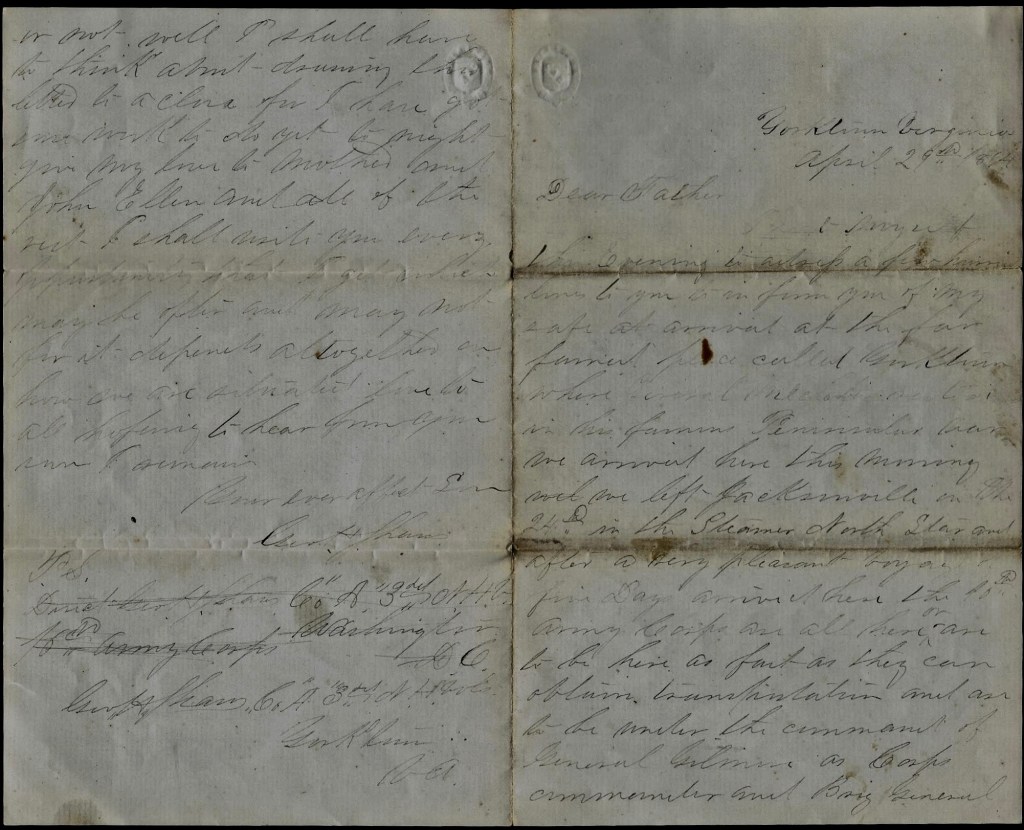 Yorktown Virginia
April 29th 1864
Dear Father
I
this evening to a few
lines to you to inform you of my
safe arrival at the far
famed place called Yorktown
where several
in the famous Peninsular
we arrived here this morning
wel we left Jacksonville on the
24th in the Steamer North Star and
after a very pleasant
five Days arrived here the 10th
Army Corps are all here or are
to be here as fast as they can
obtain transportation and are
to be under the command of
General Gilmore as Corps
commander and Brig General
or not well I shall have
to think about drawing this
letter to a close for I have got
some work to do yet to night
give my love to Mother and
John Ellen and all of the
rest I shall write you every
opportunity that I get
may be often and may not
for it depends altogether on
how we are situated love to
all hopeing to hear from you
soon I remain
Your ever affect Son
Geo Shaw
P.S.
Direct Geo Shaw Co "A" "3rd" N.H.V.
Washington
10th Army Corps
D C.
Geo Shaw Co "A" "3rd" N H Vols
Yorktown
VA